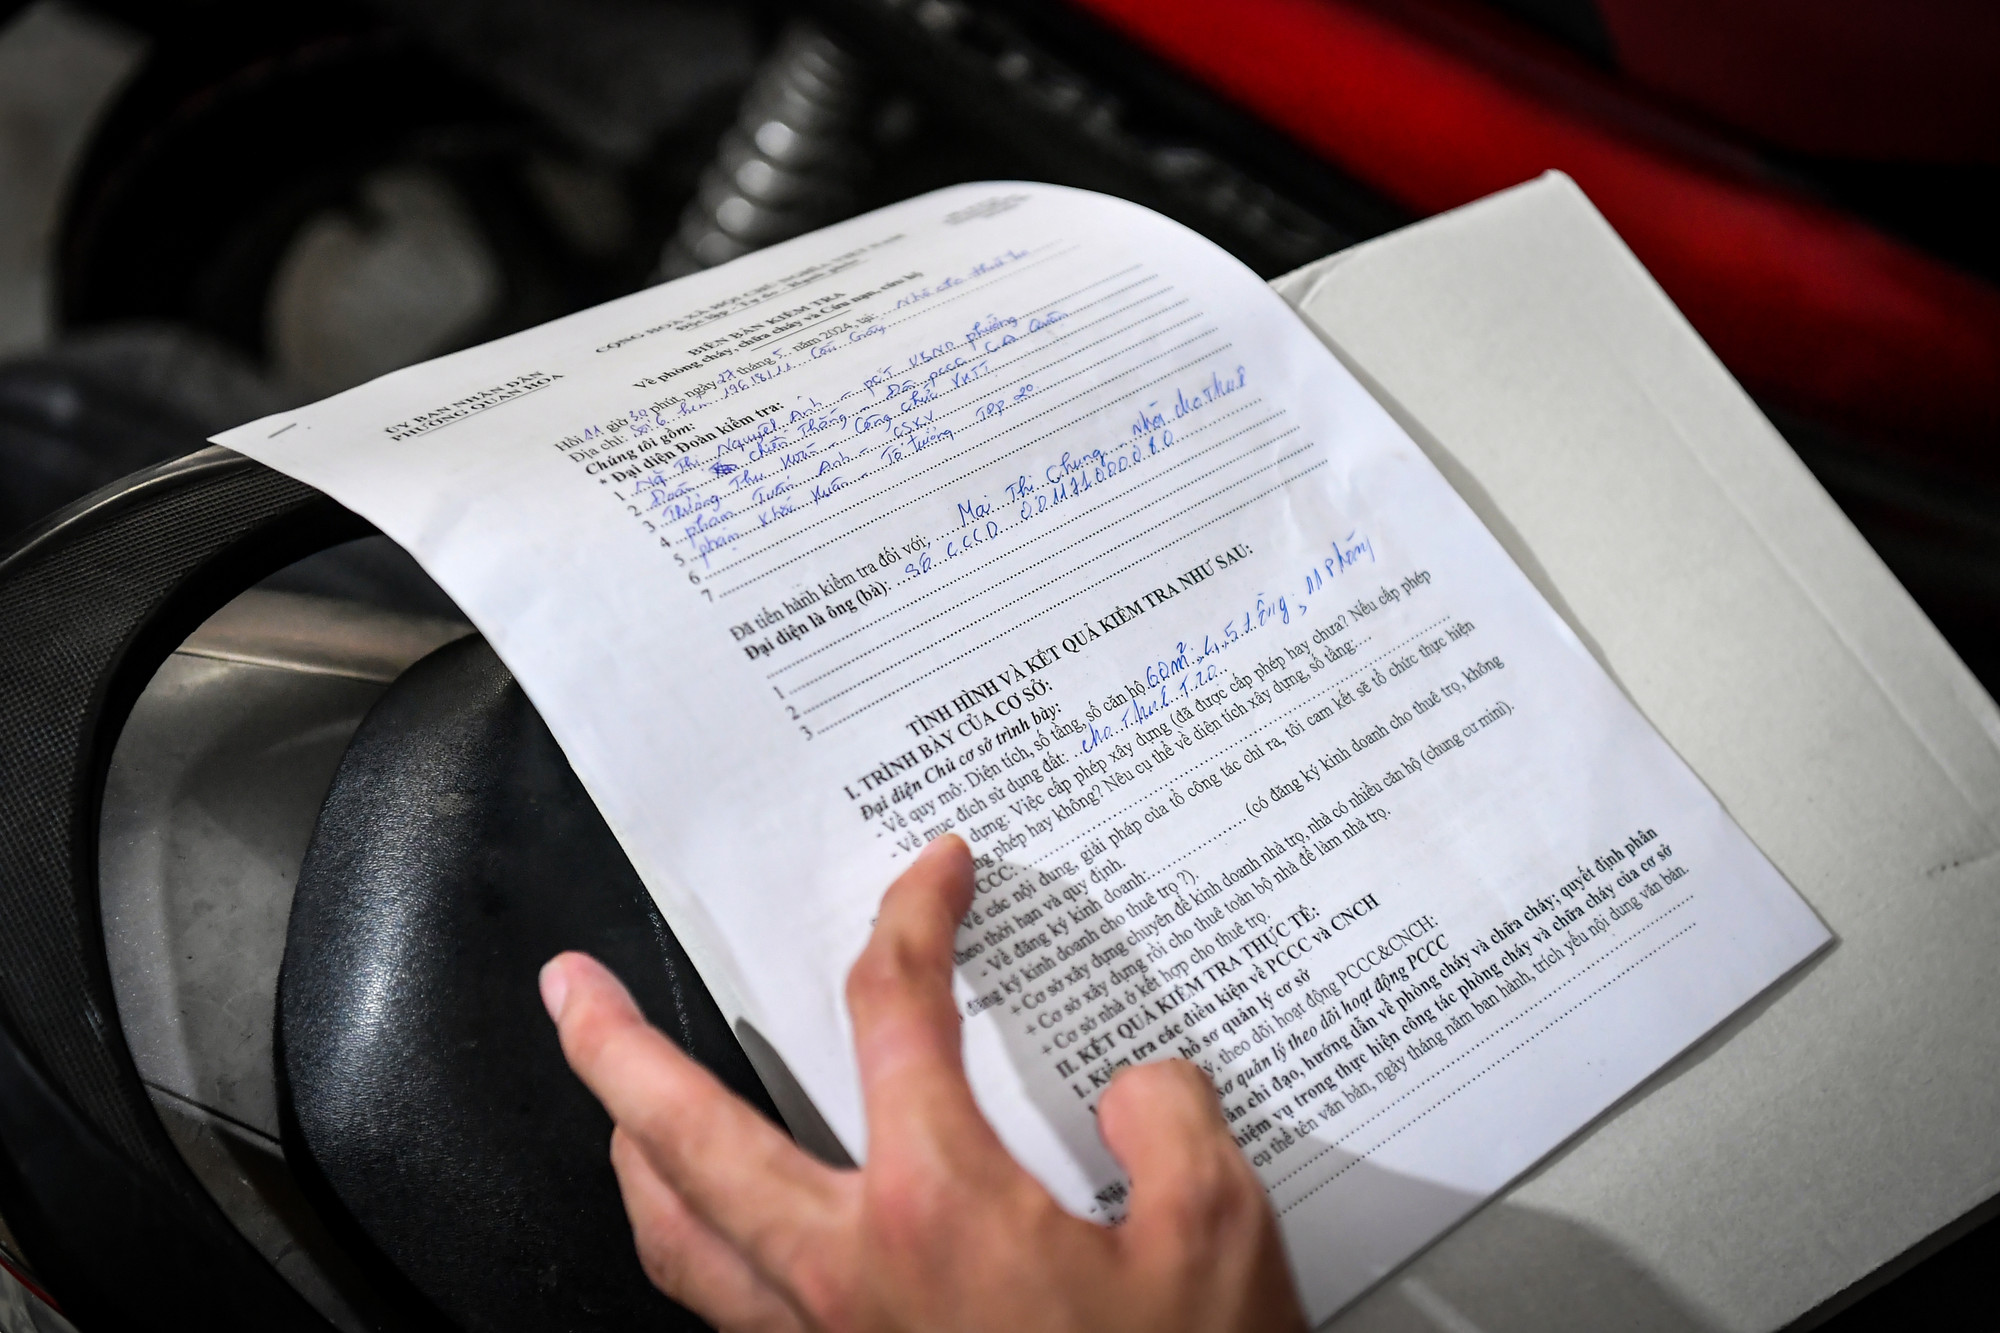 ỦY BAN NHÂN DÂN
PHƯỜNG QUAN HOA
CỘNG HOÀ XÃ HỘI CHỦ NGHĨA VIỆT NAM
Độc lập - Tự do - Hạnh phúc
BIÊN BẢN KIỂM TRA
Về phòng cháy, chữa cháy và Cứu nạn, cứu hộ
Hồi 11 giờ 30 phút, ngày 27 tháng 5 năm 2024, tại: Nhà cho thuê trọ
Địa chỉ: Số 6 hẻm 196/8/11 Cầu Giấy
Chúng tôi gồm:
* Đại diện Đoàn kiểm tra:
1 Thị Nguyệt Anh - PCT UBND phường
2 Chiến Thắng - Đội PCCC CA Quận
3 Thu Xuân - Công chức VHTT
4 Phạm Tuấn Anh - CSKV
5 Phạm Khắc Xuân - Tổ trưởng TDP 20
6
7
Đã tiến hành kiểm tra đối với: Mai Thị Chung Nhà cho thuê
Đại diện là ông (bà): Số CCCD
1
2
3
TÌNH HÌNH VÀ KẾT QUẢ KIỂM TRA NHƯ SAU:
I. TRÌNH BÀY CỦA CƠ SỞ:
Đại diện Chủ cơ sở trình bày:
- Về quy mô: Diện tích, số tầng, số căn hộ 60m², 5 tầng, 11 phòng
- Về mục đích sử dụng đất: cho thuê trọ
dụng: Việc cấp phép xây dựng (đã được cấp phép hay chưa? Nếu cấp phép
phép hay không? Nêu cụ thể về diện tích xây dựng, số tầng:
CCC:
Về các nội dung, giải pháp của tổ công tác chỉ ra, tôi cam kết sẽ tổ chức thực hiện
theo thời hạn và quy định.
- Về đăng ký kinh doanh: (có đăng ký kinh doanh cho thuê trọ, không
đăng ký kinh doanh cho thuê trọ ?).
+ Cơ sở xây dựng chuyên để kinh doanh nhà trọ, nhà có nhiều căn hộ (chung cư mini).
+ Cơ sở xây dựng rồi cho thuê toàn bộ nhà để làm nhà trọ.
+ Cơ sở nhà ở kết hợp cho thuê trọ.
II. KẾT QUẢ KIỂM TRA THỰC TẾ:
1. Kiểm tra các điều kiện về PCCC và CNCH
hồ sơ quản lý cơ sở
theo dõi hoạt động PCCC&CNCH:
sơ quản lý theo dõi hoạt động PCCC
chỉ đạo, hướng dẫn về phòng cháy và chữa cháy; quyết định phân
vụ trong thực hiện công tác phòng cháy và chữa cháy của cơ sở
cụ thể tên văn bản, ngày tháng năm ban hành, trích yếu nội dung văn bản.